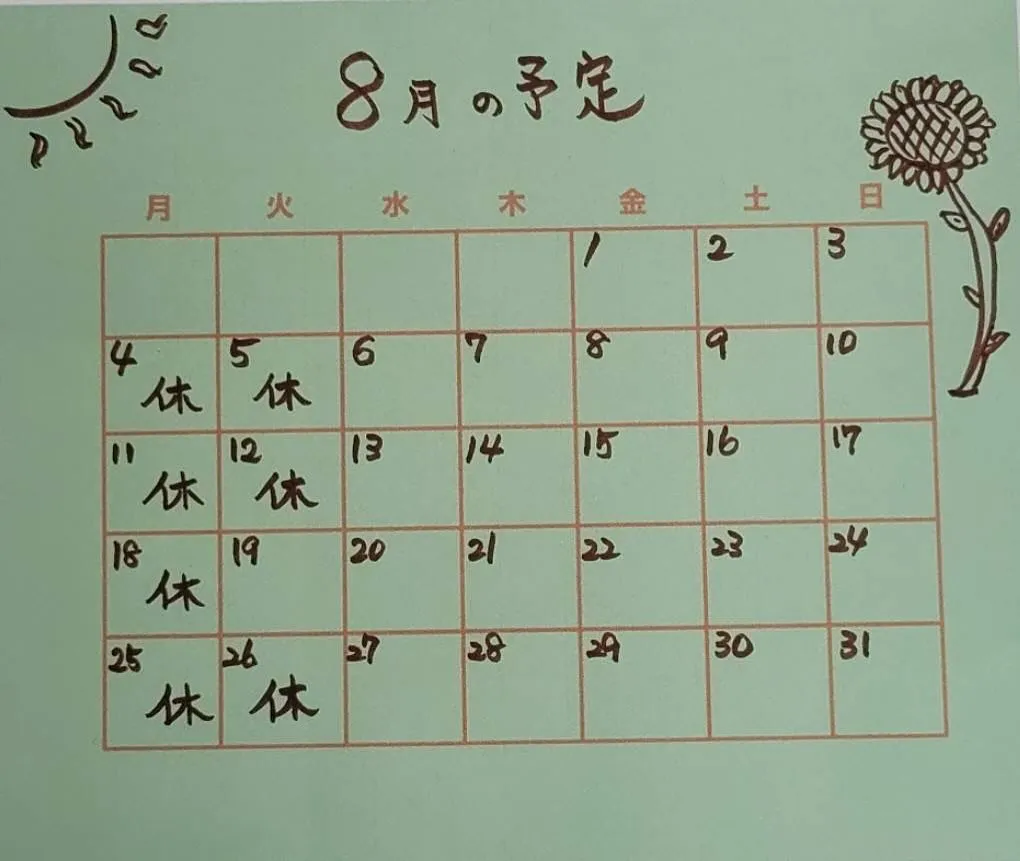 8月の予定
月 火 水 木 金 土 日
1 2 3
4 5 6 7 8 9 10
休 休
11 12 13 14 15 16 17
休 休
18 19 20 21 22 23 24
休
25 26 27 28 29 30 31
休 休